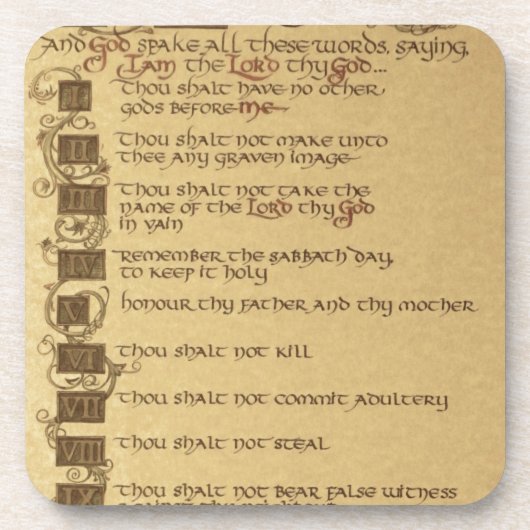 And God spake all these words, saying,
I am the Lord thy God...
I Thou shalt have no other
gods before me
II Thou shalt not make unto
thee any graven image
III Thou shalt not take the
name of the Lord thy God
in vain
IV Remember the sabbath day,
to keep it holy
V honour thy father and thy mother
VI Thou shalt not kill
VII Thou shalt not commit adultery
VIII Thou shalt not steal
IX Thou shalt not bear false witness